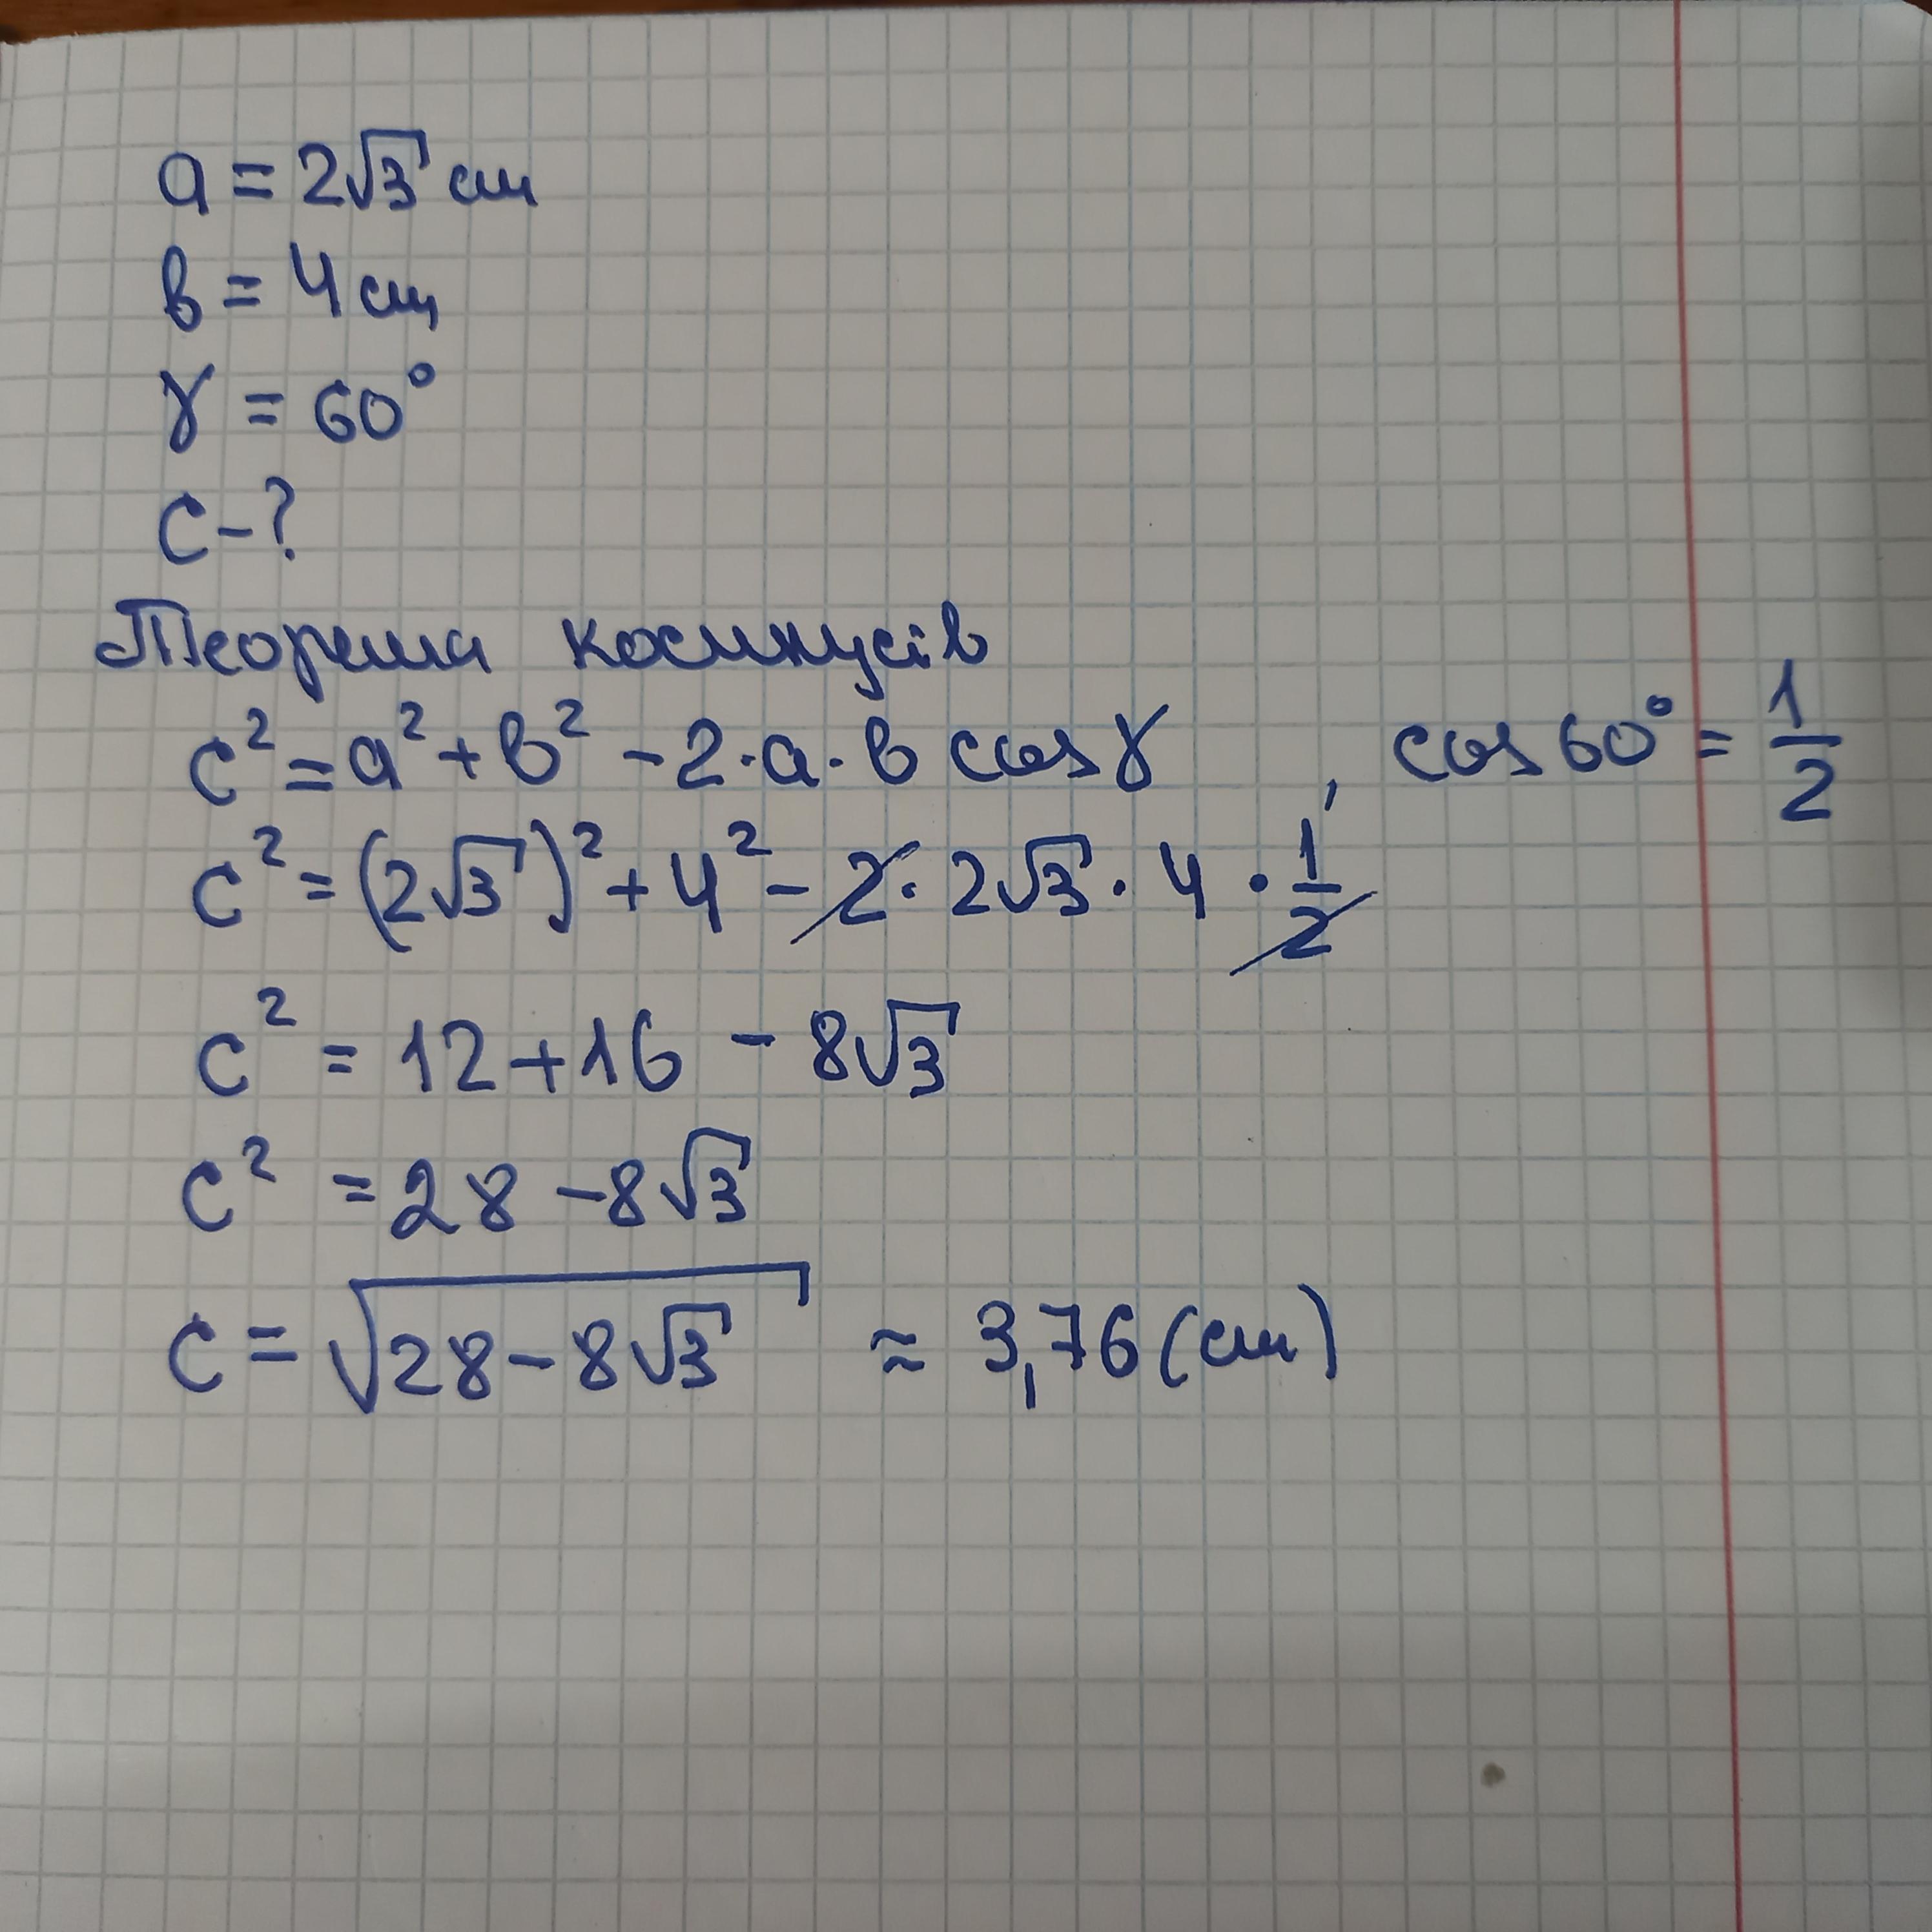 a = 2√3 см
в = 4 см
γ = 60°
c - ?
Теорема косинусів
c² = a² + в² - 2·a·в cos γ , cos 60° = 1/2
c² = (2√3)² + 4² - 2·2√3·4·1/2
c² = 12 + 16 - 8√3
c² = 28 - 8√3
c = √(28 - 8√3) ≈ 3,76 (см)